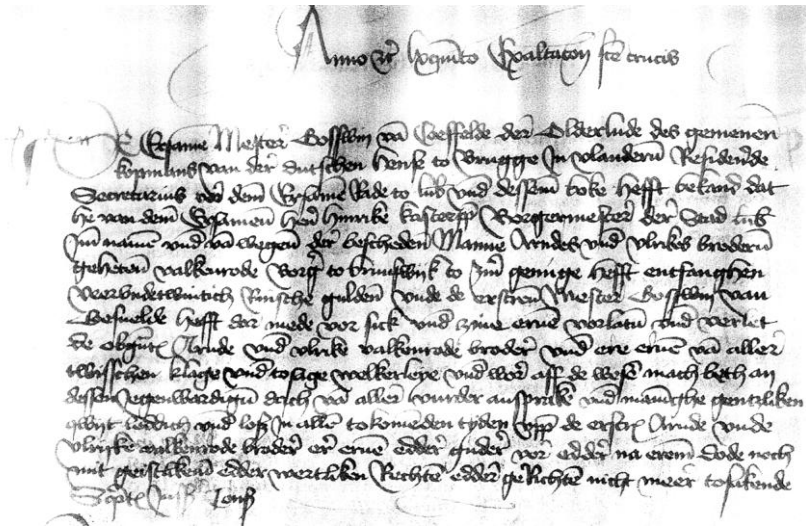 Anno etc. lxquinto Exaltacionis sancte crucis
De Ersame Mester Gosswin van Coesfelde der Olderlude des gemenen
kopmans van der dutschen hense to Brugge In vlandern Residerende
Secretarius vor dem Ersame Rade to lub vnd dessem boke hefft bekand dat
he van dem Ersamen hern hinrike kastorp Borgermester der Stad lub
Im namen vnd van wegen der bescheden Manne Arndes vnd vlrikes brodern
geheten valkenrode Borger to brunswijk to siner genuge hefft entfanghen
veervndetwintich Rinsche gulden vnde de Mester Gosswin van
Cosuelde hefft dar mede vor sick vnd zine eruen vorlaten vnd vorlet
de Arnde vnd vlrike valkenrode broder vnd ere eruen van aller
twisschen klage vnd tosage welkerleye vnd wor aff de wesen mach beth an
dessen Jegenwardigen dach van aller vurder ansprake vnd maninghe gentzliken
qwijt leddich vnd losz In allen tokomenden tyden vpp de Arnde vnde
vlrike valkenrode broder er eruen edder guder vor edder na erem dode noch
mit geistliken edder wertliken Rechte edder geRichten nicht meer tosakende
Scriptum Jussu